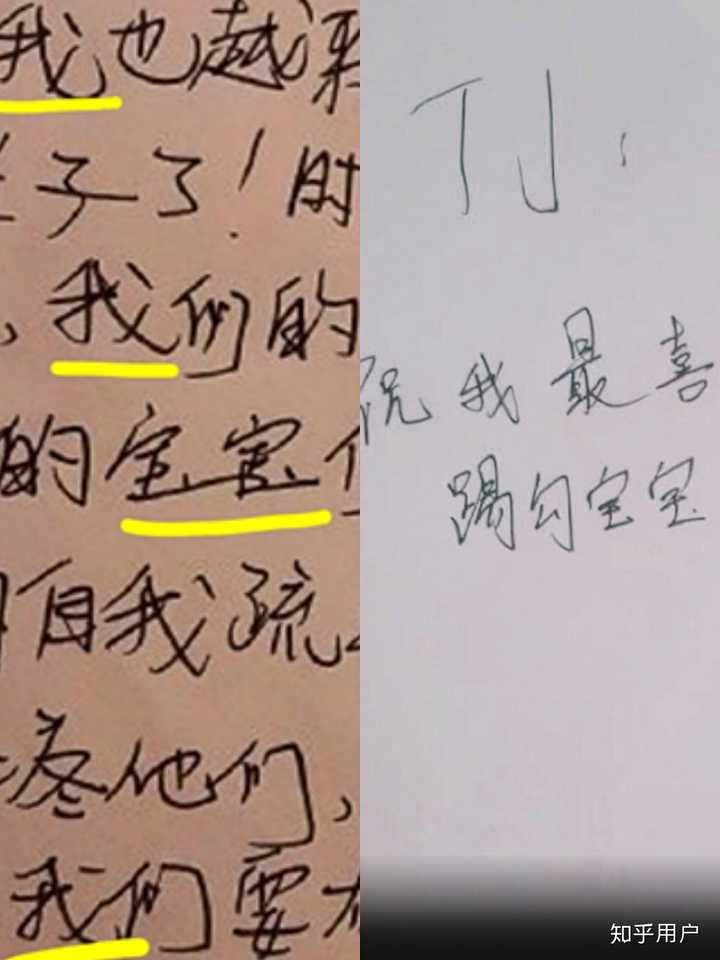 我也越
子了！时
，我们的
的宝宝
自我疏
疼他们，
我们要
TJ：
说我最喜
踢勾宝宝
知乎用户